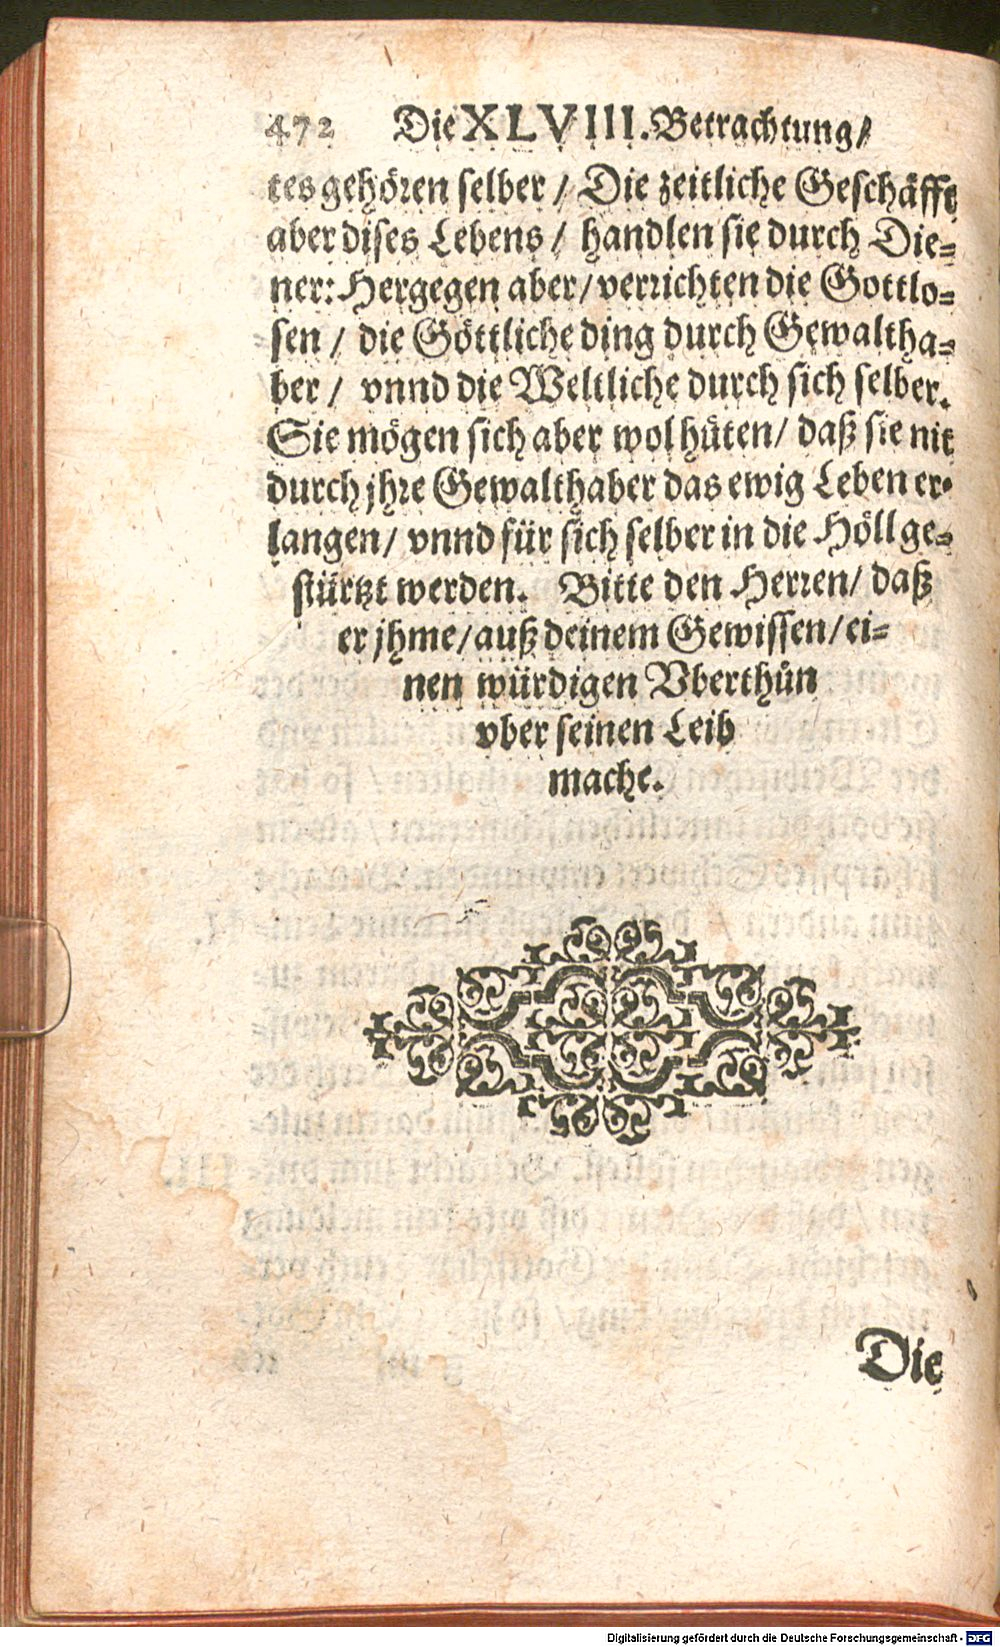 472 Die XLVIII. Betrachtung/
tes gehören selber / Die zeitliche Geschäfft
aber dises Lebens / handlen sie durch Die-
ner: Hergegen aber/ verrichten die Gottlo-
sen / die Göttliche ding durch Gewaltha-
ber / vnnd die Weltliche durch sich selber.
Sie mögen sich aber wol hüten/ daß sie nit
durch jhre Gewalthaber das ewig Leben er-
langen/ vnnd für sich selber in die Höll ge-
stürtzt werden. Bitte den Herren/ daß
er jhme/ auß deinem Gewissen/ ei-
nen würdigen Vberthün
vber seinen Leib
mache.
Die
Digitalisierung gefördert durch die Deutsche Forschungsgemeinschaft - DFG